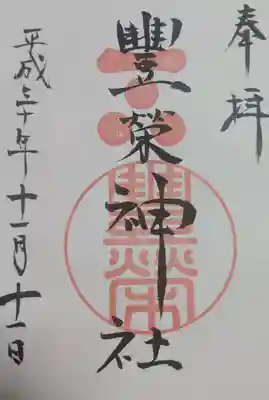 奉拝
豐榮神社
平成三十年十一月十一日